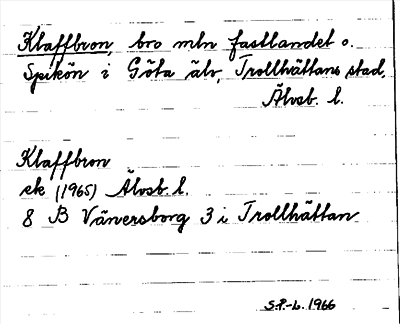 Klaffbron, bro mln fastlandet o.
Spikön i Göta älv, Trollhättans stad,
Älvsb. l.
Klaffbron
ek (1965) Älvsb l.
8 B Vänersborg 3 i Trollhättan
S.P.-L. 1966